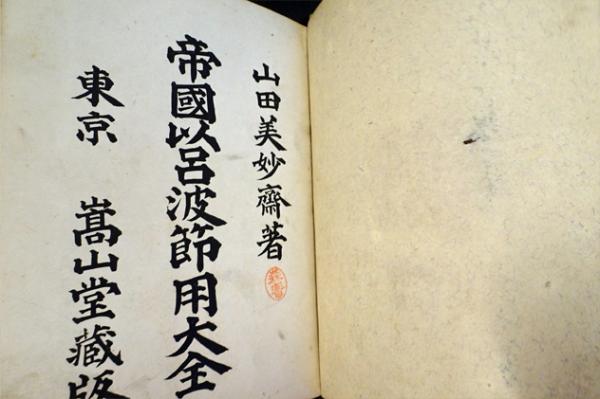 山田美妙齋著
帝國以呂波節用大全
東京 嵩山堂藏版